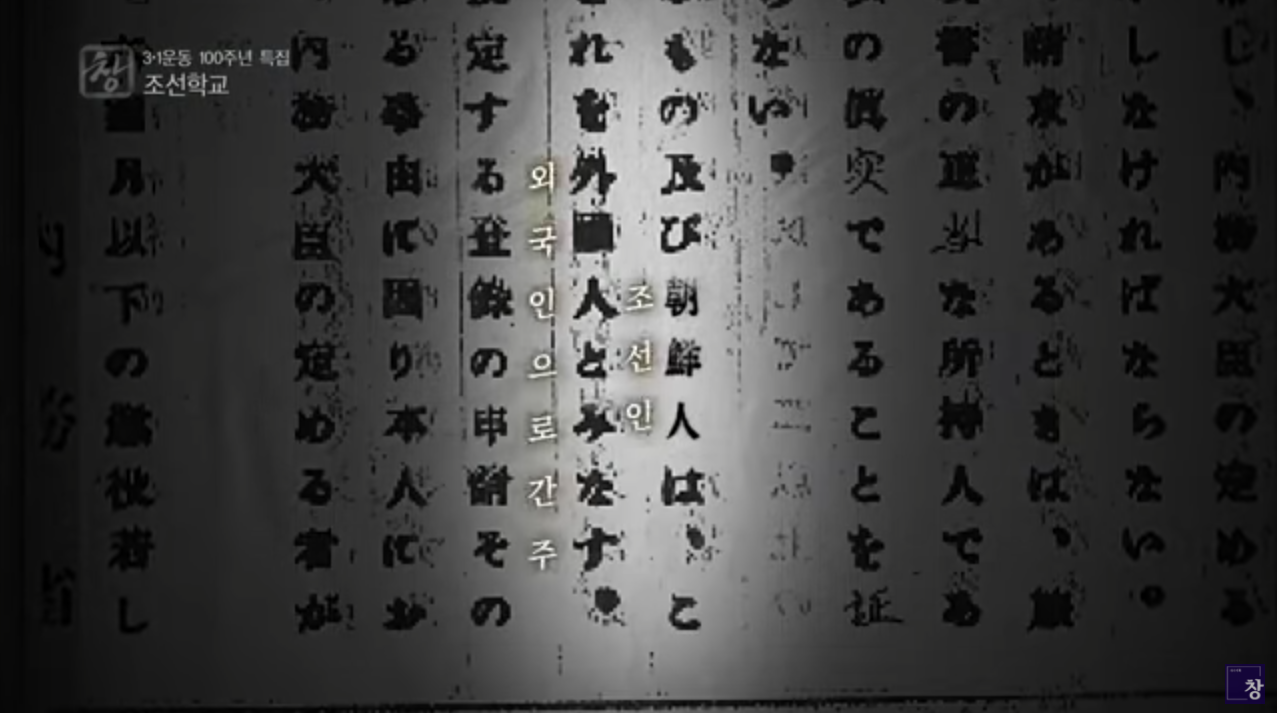 창
3·1운동 100주년 특집
조선학교
じ、内務大臣の定める
しなければならない。
請求があるときは、旅
の 当な所持人であ
の真実であることを証
ない。
もの及び朝鮮人は、こ
조선인
れを外國人とみなす。
외국인으로 간주
定する登録の申請その
る事由に因り本人にか
内務大臣の定める者が
月以下の懲役若し
창